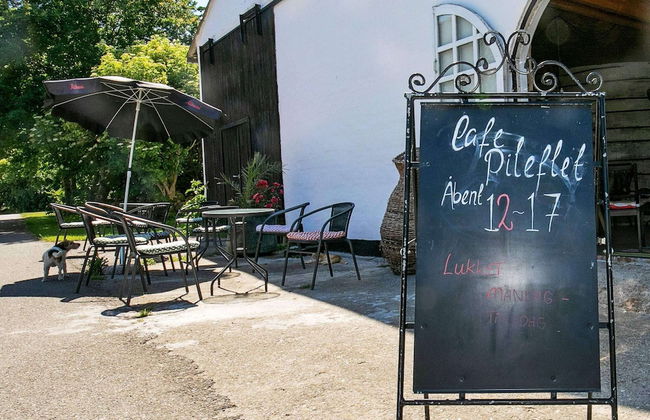 Cafe
Pileflet
Åbent 12~17
Lukket
MANDAG -